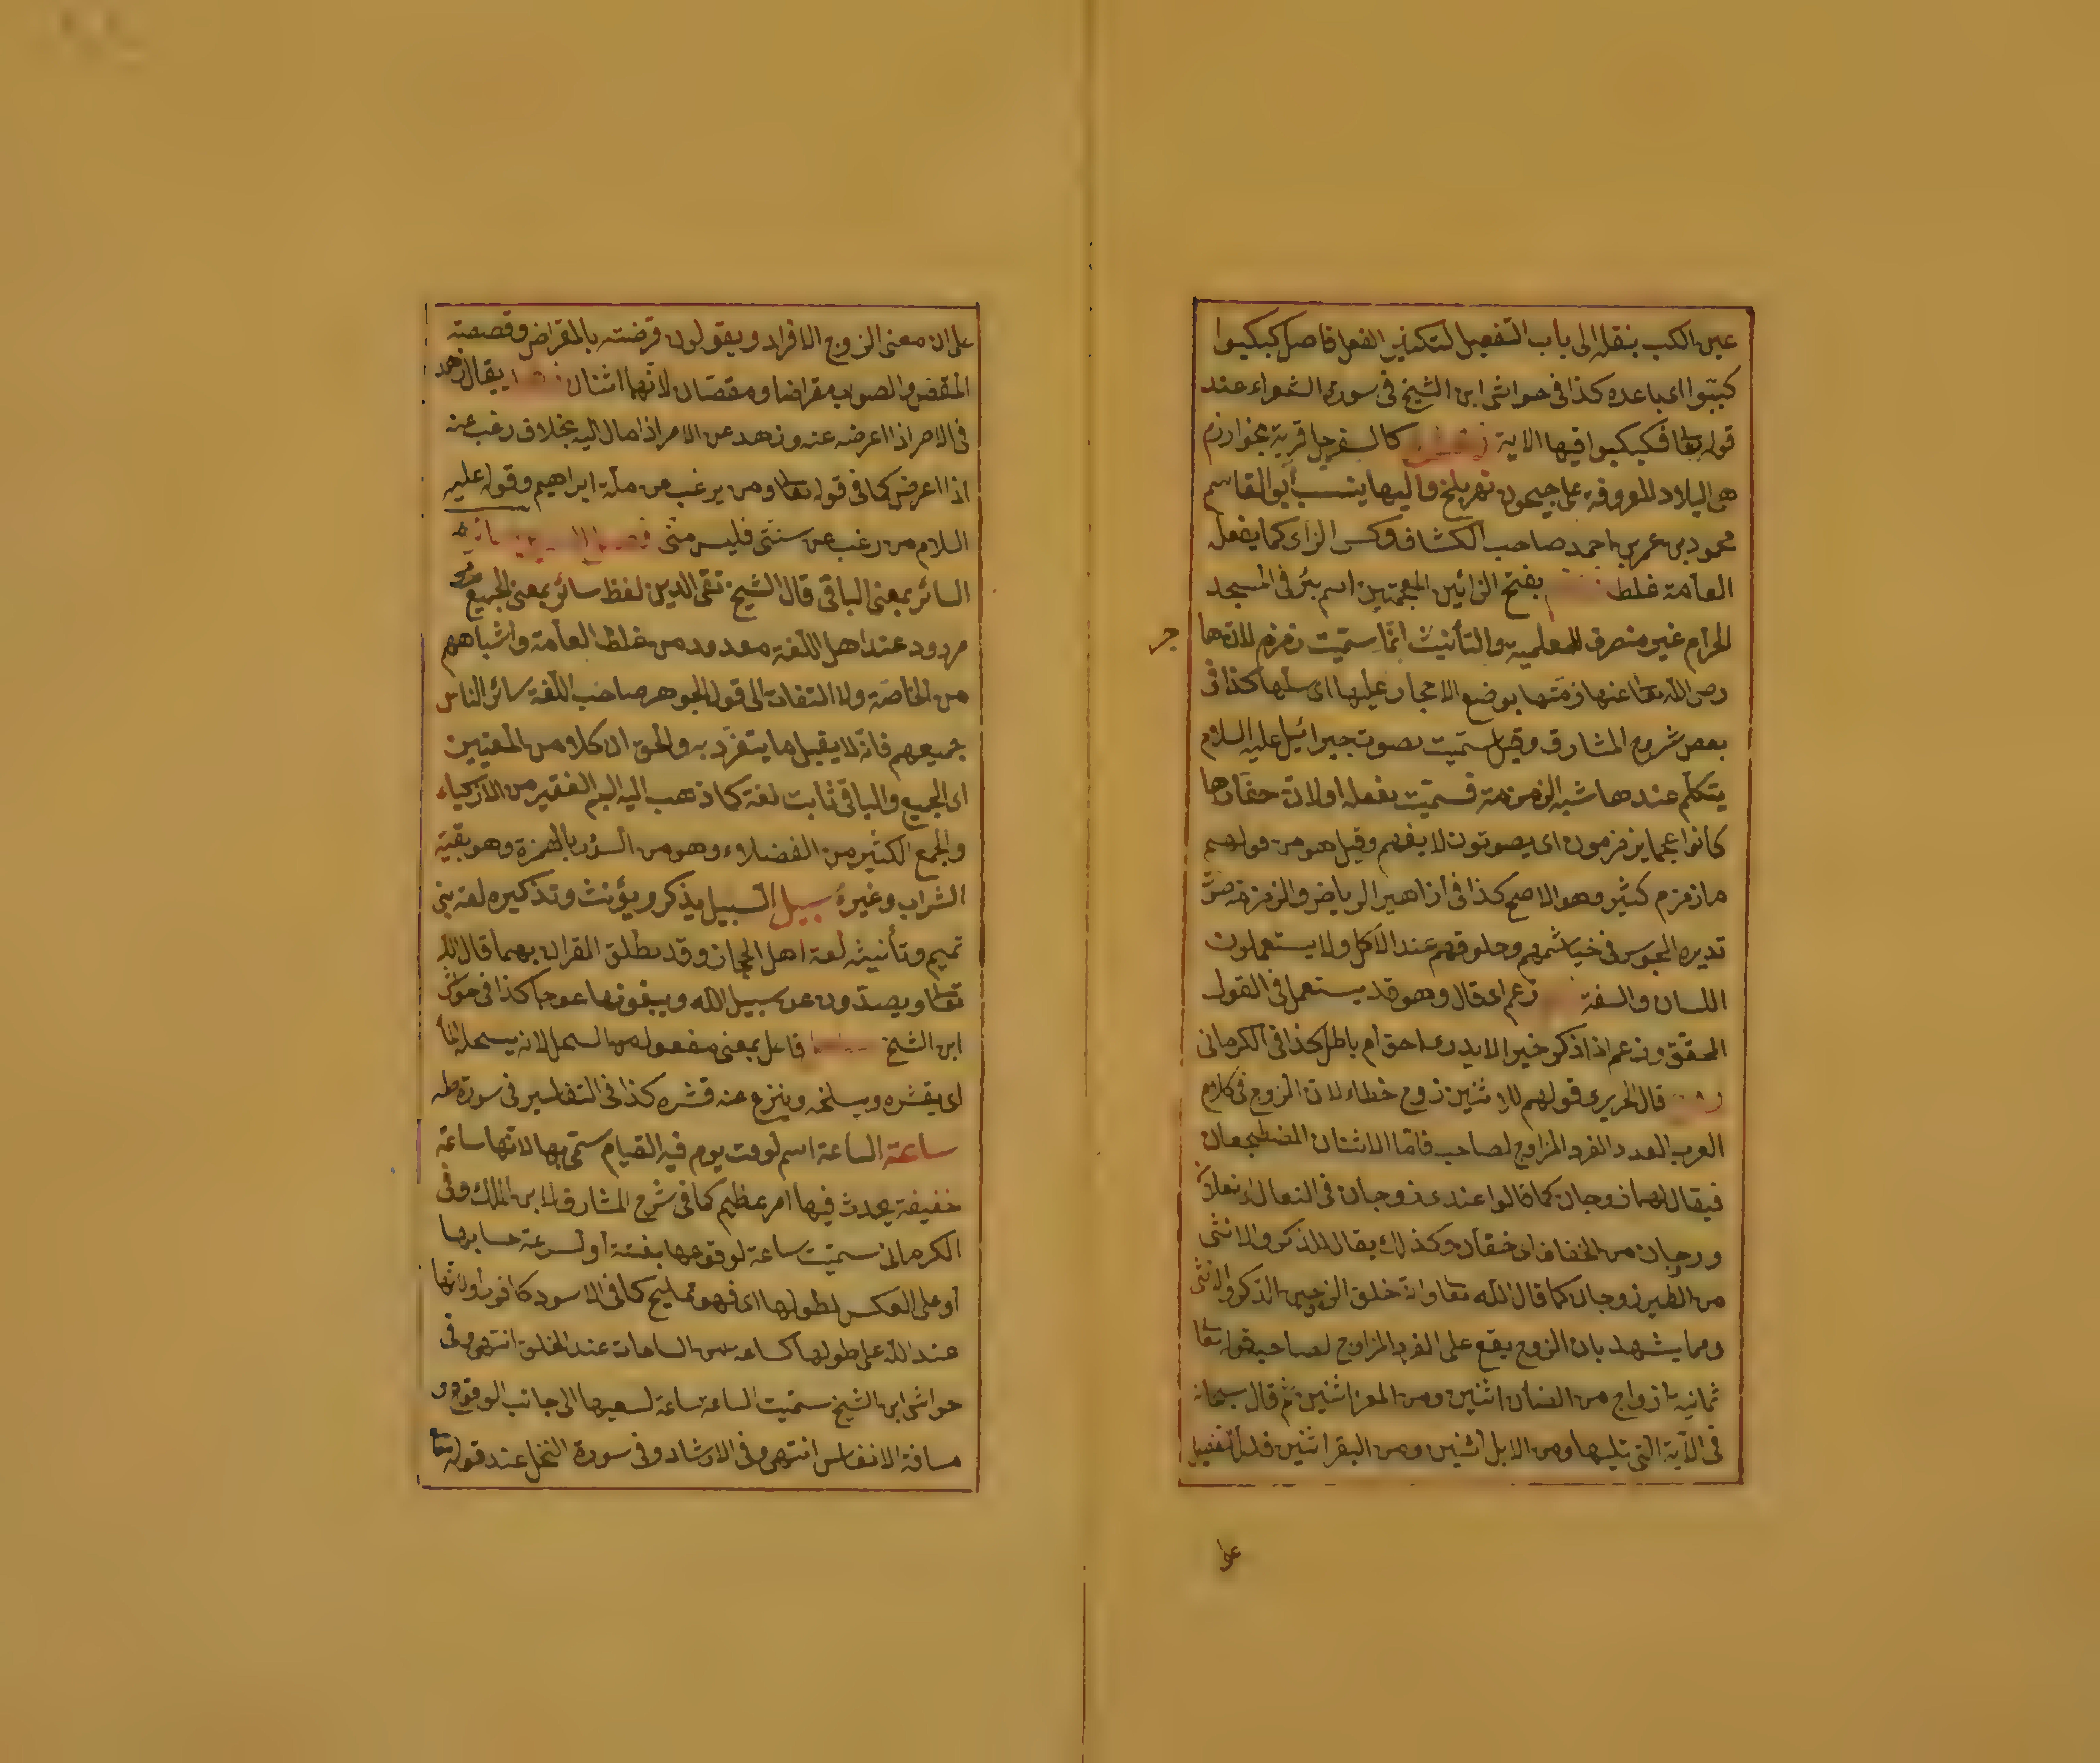 عين الكب بنقله الى باب التفعيل لتكثير الفعل فاصل كبكبوا
كببوا اى باعده كذا فى حواشى ابن الشيخ فى سورة الشعراء عند
قوله تعا فكبكبوا فيها الاية كالسفرجل قرية بخوارزم
هى البلاد المعروفة على جيحون نهر بلخ واليها ينسب أبو القاسم
محمود بن عمر بن احمد صاحب الكشاف وكسر الزاى كما يفعله
العامة غلط بفتح الزائين المعجمتين اسم بئر فى المسجد
الحرام غير منصرف للعلمية والتأنيث انما سميت زمزم لان ها
رضى الله تعا عنها زمتها بوضع الاحجار عليها اى كذا فى
بعض شروح المشارق وقيل سميت بصوت جبرائيل عليه السلام
يتكلم عندها شبه الزمزمة فسميت بفعله اولان حفارها
كانوا عجما يزمزمون اى يصوتون لا يفهم وقيل هو من قولهم
ما زمزم كثير وهو الاصح كذا فى أزاهير الرياض والزمزمة صوت
تديره المجوس فى خياشيمهم وحلوقهم عند الاكل ولا يستعملون
اللسان والشفة زعم اى قال وهو قد يستعمل فى القول
المحقق وزعم اذا ذكر خبر الا يدرى احق أم باطل كذا فى الكرمانى
قال الحريرى قولهم للاثنين زوج خطاء لان الزوج فى كلام
العرب العدد الفرد المزاوج لصاحبه فاما الاثنان المصطحبان
فيقال لهما زوجان كما قالوا عندى زوجان فى النعال اى نعلان
وزوجان من الخفاف اى خفان وكذلك يقال للذكر والانثى
من الطير زوجان كما قال الله تعا وانه خلق الزوجين الذكر والانثى
ومما يشهد بان الزوج يقع على الفرد المزاوج لصاحبه قوله تعا
ثمانية ازواج من الضأن اثنين ومن المعز اثنين ثم قال سبحانه
فى الآية التى تليها ومن الابل اثنين ومن البقر اثنين فدل التفصيل
على
على ان معنى الزوج الافراد ويقولون قرضته بالمقراض وقصصته
المقص والصواب مقراضان ومقصان لانهما اثنان يقال زهد
فى الامر اذا اعرض عنه وزهد عن الامر اذا مال اليه بخلاف رغب عنه
اذا اعرض كما فى قوله تعا ومن يرغب عن ملة ابراهيم وقوله عليه
السلام من رغب عن سنتى فليس منى
السائر بمعنى الباقى قال الشيخ تقى الدين لفظ سائر بمعنى الجميع
مردود عند اهل اللغة معدود من غلط العامة واشباههم
من الخاصة ولا التفات الى قول الجوهر صاحب اللغة سائر الناس
جميعهم فانه لا يقبل ما يتفرد به والحق ان كلا من المعنيين
اى الجميع والباقى ثابت لغة كما ذهب اليه الجم الغفير من الاذكياء
والجمع الكثير من الفضلاء وهو من السؤر بالهمزة وهو بقية
الشراب وغيره سبيل السبيل يذكر ويؤنث وتذكيره لغة بنى
تميم وتأنيثه لغة اهل الحجاز وقد يطلق القران بهما قال الله
تعا ويصدون عن سبيل الله ويبغونها عوجا كذا فى حواشى
ابن الشيخ فاعل بمعنى مفعول من السحل لانه يسحله الماء
اى يقشره ويسلخه وينزع عنه قشره كذا فى التفاسير فى سورة طه
ساعة الساعة اسم لوقت يوم فيه القيام سمى بها لانها ساعة
خفيفة يحدث فيها امر عظيم كما فى شرح المشارق لابن الملك وفى
الكرمانى سميت ساعة لوقوعها بغتة أو لسرعة حسابها
أو على العكس لطولها اى فهو تمليح كما فى الاسود كافور أو لانها
عند الله على طولها كساعة من الساعات عند الخلق انتهى وفى
حواشى ابن الشيخ سميت الساعة ساعة لسعيها الى جانب الوقوع و
مسافة الانفاس انتهى وفى الارشاد وفى سورة النحل عند قوله تعا